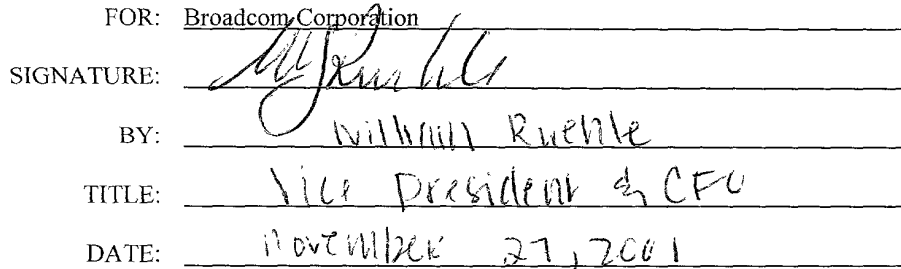 FOR: Broadcom Corporation
SIGNATURE: WJ Ruehle
BY: William Ruehle
TITLE: Vice President & CFO
DATE: November 27, 2001